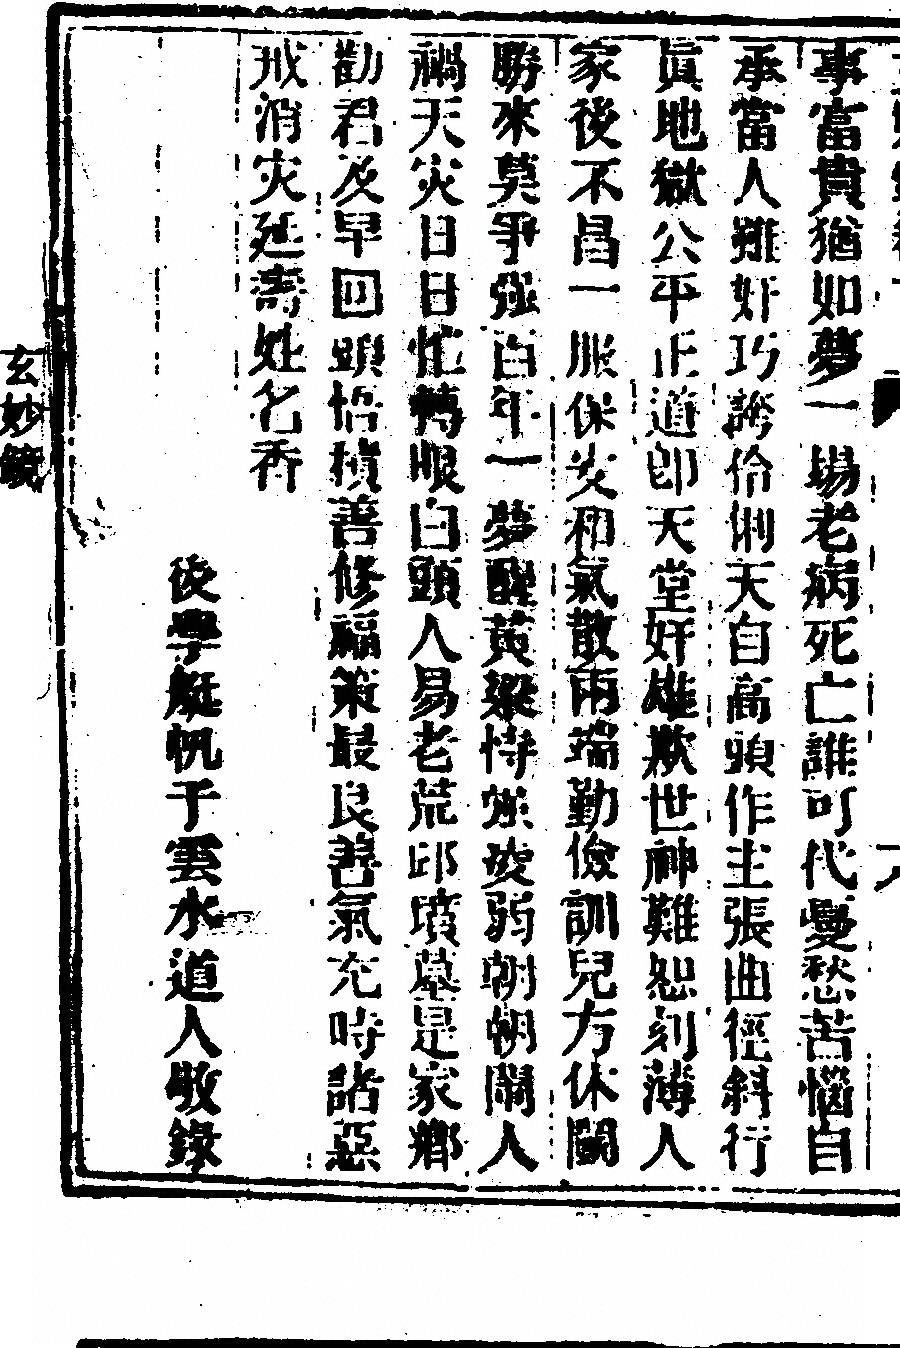 事富貴猶如夢一場老病死亡誰可代憂愁苦惱自
承當人雖奸巧誇伶俐天自高頭作主張曲徑斜行
眞地獄公平正道卽天堂奸雄欺世神難恕刻薄人
家後不昌一服保安和氣散兩端勤儉訓兒方休鬪
勝來莫爭强百年一夢醒黃粱恃勢凌弱朝朝鬧人
禍天灾日日忙轉眼白頭人易老荒邱墳墓是家鄉
勸君及早回頭悟積善修福策最良善氣充時諸惡
戒消灾延壽姓名香
後學艇帆子雲水道人敬錄
玄妙鏡